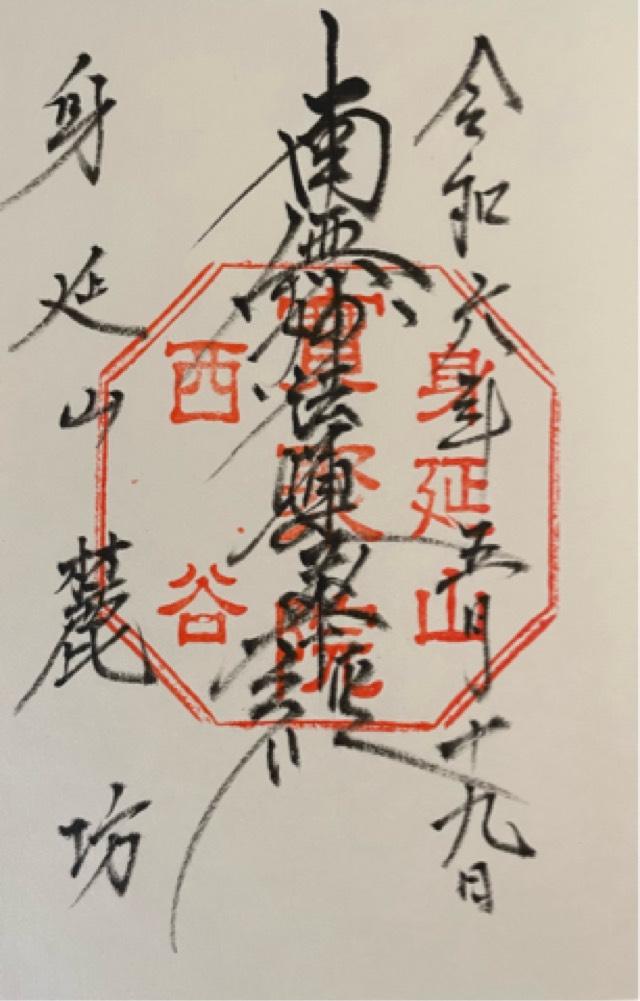 令和六年五月十九日
南無妙法蓮華経
身延山麓坊
身延山
西谷